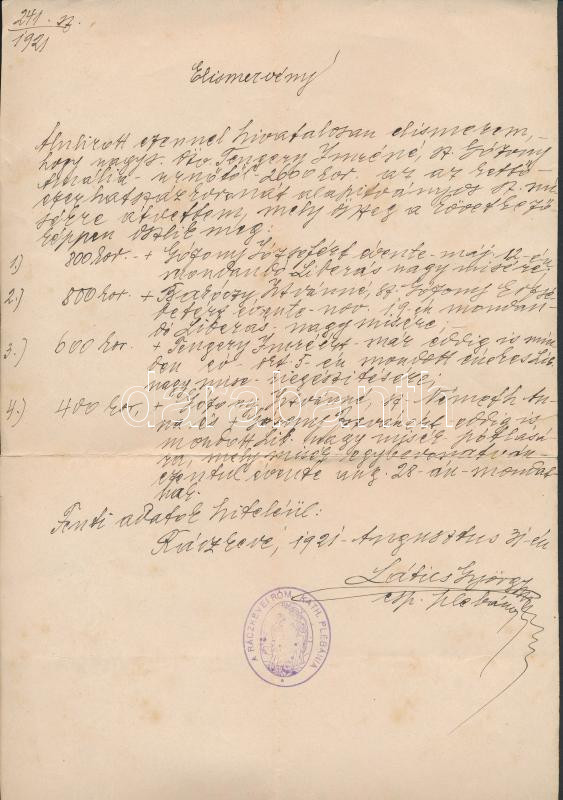 241. sz.
1921
Elismervény
Alulirott ezennel hivatalosan elismerem,
hogy nagys. özv. Tengery Imréné, sz. Gózony
Amália úrnőtől 2600 kor. az az kettő-
ezerhatszáz koronát alapítványos sz. mi-
sékre átvettem, mely összeg a következő
képpen oszlik meg:
1.) 800 kor. + Gózony Józsefért évente máj. 12-én
mondandó Liberás nagy misére
2.) 800 kor. + Istvánné, sz. Gózony Erzsé-
betért évente nov. 19-én mondan-
dó Liberás nagymisére,
3.) 600 kor. + Tengery Imréért már eddig is min-
den év okt. 5-én mondott énekes Lib.
nagy mise kiegészítésére,
4.) 400 kor. Gózony Istvánné, sz. Németh An-
na és + Gózony eddig is
mondott Lib. nagy misék pótlásá-
ra, mely misék egybevonatván
ezentúl évente aug. 28-án mondat-
nak.
Fenti adatok hiteléül:
Ráczkeve, 1921. Augusztus 31-én
Látics György
esp. plebános
A RÁCZKEVEI RÓM. KATH. PLÉBÁNIA
darabanth